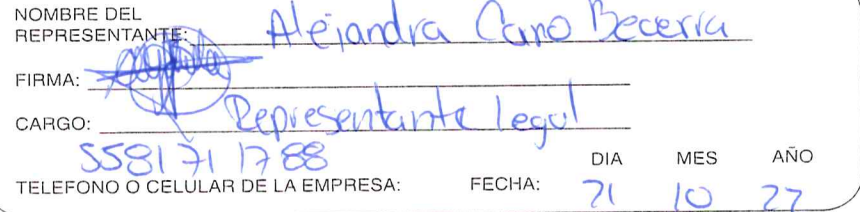 NOMBRE DEL
REPRESENTANTE: Alejandra Cano Becerra
FIRMA:
CARGO: Representante legal
5581711788
DIA MES AÑO
TELEFONO O CELULAR DE LA EMPRESA: FECHA: 21 10 22